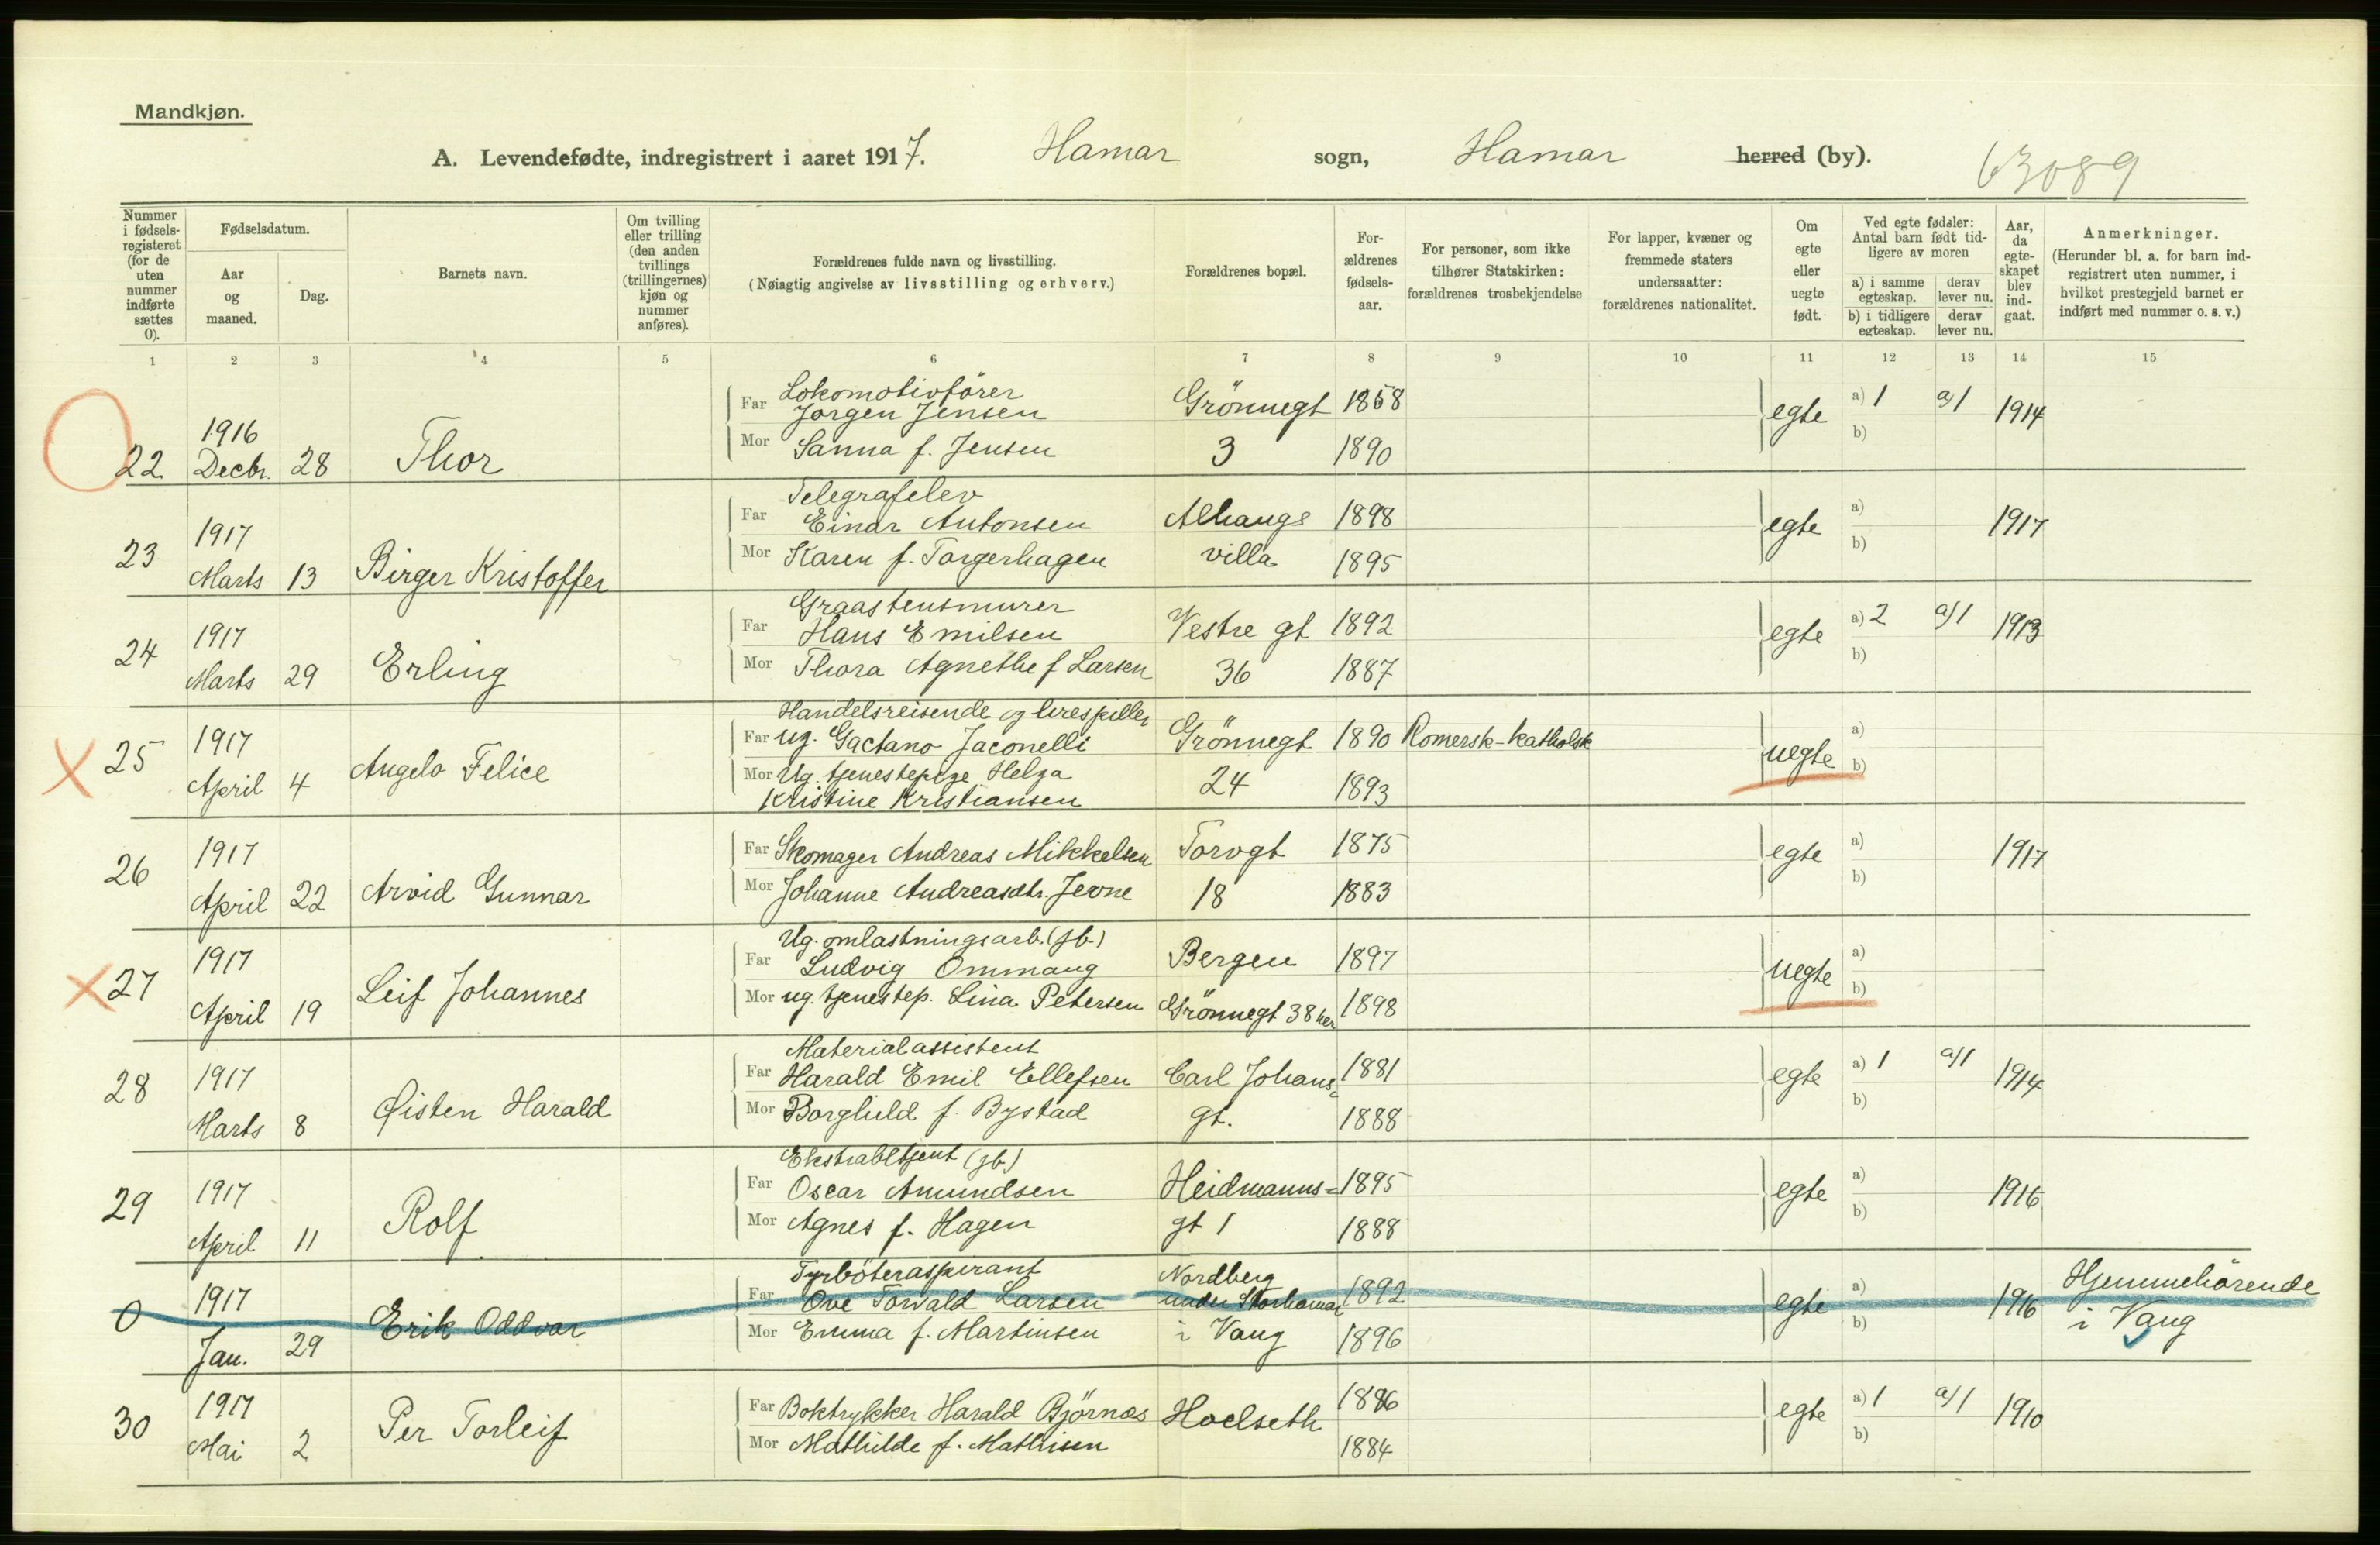 Mandkjøn.
A. Levendefødte, indregistrert i aaret 1917. Hamar sogn, Hamar herred (by). 63089
Nummer i fødselsregisteret (for de uten nummer indførte sættes 0).
Fødselsdatum.
Aar og maaned.
Dag.
Barnets navn.
Om tvilling eller trilling (den anden tvillings (trillingernes) kjøn og nummer anføres).
Forældrenes fulde navn og livsstilling.
(Nøiagtig angivelse av livsstilling og erhverv.)
Forældrenes bopæl.
Forældrenes fødselsaar.
For personer, som ikke tilhører Statskirken: forældrenes trosbekjendelse
For lapper, kvæner og fremmede staters undersaatter: forældrenes nationalitet.
Om egte eller uegte født.
Ved egte fødsler: Antal barn født tidligere av moren
a) i samme egteskap. derav lever nu.
b) i tidligere egteskap. derav lever nu.
Aar, da egteskapet blev indgaat.
Anmerkninger.
(Herunder bl. a. for barn indregistrert uten nummer, i hvilket prestegjeld barnet er indført med nummer o. s. v.)
1 2 3 4 5 6 7 8 9 10 11 12 13 14 15
Lokomotivfører
22 1916 Decbr. 28 Thor Far Jørgen Jensen Grönnegt 1868 egte a) 1 a/1 1914
Mor Sanna f. Jensen 3 1890 b)
Telegrafelev
23 1917 Marts 13 Birger Kristoffer Far Einar Antonsen Alhaugs 1898 egte a) 1917
Mor Karen f. Torgerhagen villa 1895 b)
Graastensmurer
24 1917 Marts 29 Erling Far Hans Emilsen Vestre gt 1892 egte a) 2 a/1 1913
Mor Thora Agnethe f Larsen 36 1887 b)
Handelsreisende og lirespiller
25 1917 April 4 Angelo Felice Far ug. Gaetano Jaconelli Grönnegt 1890 Romersk-katholsk uegte a)
Mor Ug. tjenestepige Helga 24 1893 b)
Kristine Kristiansen
26 1917 April 22 Arvid Gunnar Far Skomager Andreas Mikkelsen Torvgt 1875 egte a) 1917
Mor Johanne Andreasdtr. Jevne 18 1883 b)
Ug. omlastningsarb. (jb)
27 1917 April 19 Leif Johannes Far Ludvig Ommang Bergen 1897 uegte a)
Mor ug. tjenestep. Lina Petersen Grönnegt 38 her 1898 b)
Materialassistent
28 1917 Marts 8 Øisten Harald Far Harald Emil Ellefsen Carl Johans- 1881 egte a) 1 a/1 1914
Mor Borghild f. Bystad gt. 1888 b)
Ekstrabetjent (jb)
29 1917 April 11 Rolf Far Oscar Amundsen Heidmanns= 1895 egte a) 1916
Mor Agnes f. Hagen gt 1 1888 b)
Fyrböteraspirant Nordberg Hjemmehörende
0 1917 Jan. 29 Erik Oddvar Far Ove Torvald Larsen under Storhamar 1892 egte a) 1916 i Vang
Mor Emma f. Martinsen i Vang 1896 b)
30 1917 Mai 2 Per Torleif Far Boktrykker Harald Björnæs Hoelseth 1886 egte a) 1 a/1 1910
Mor Mathilde f. Mathisen 1884 b)